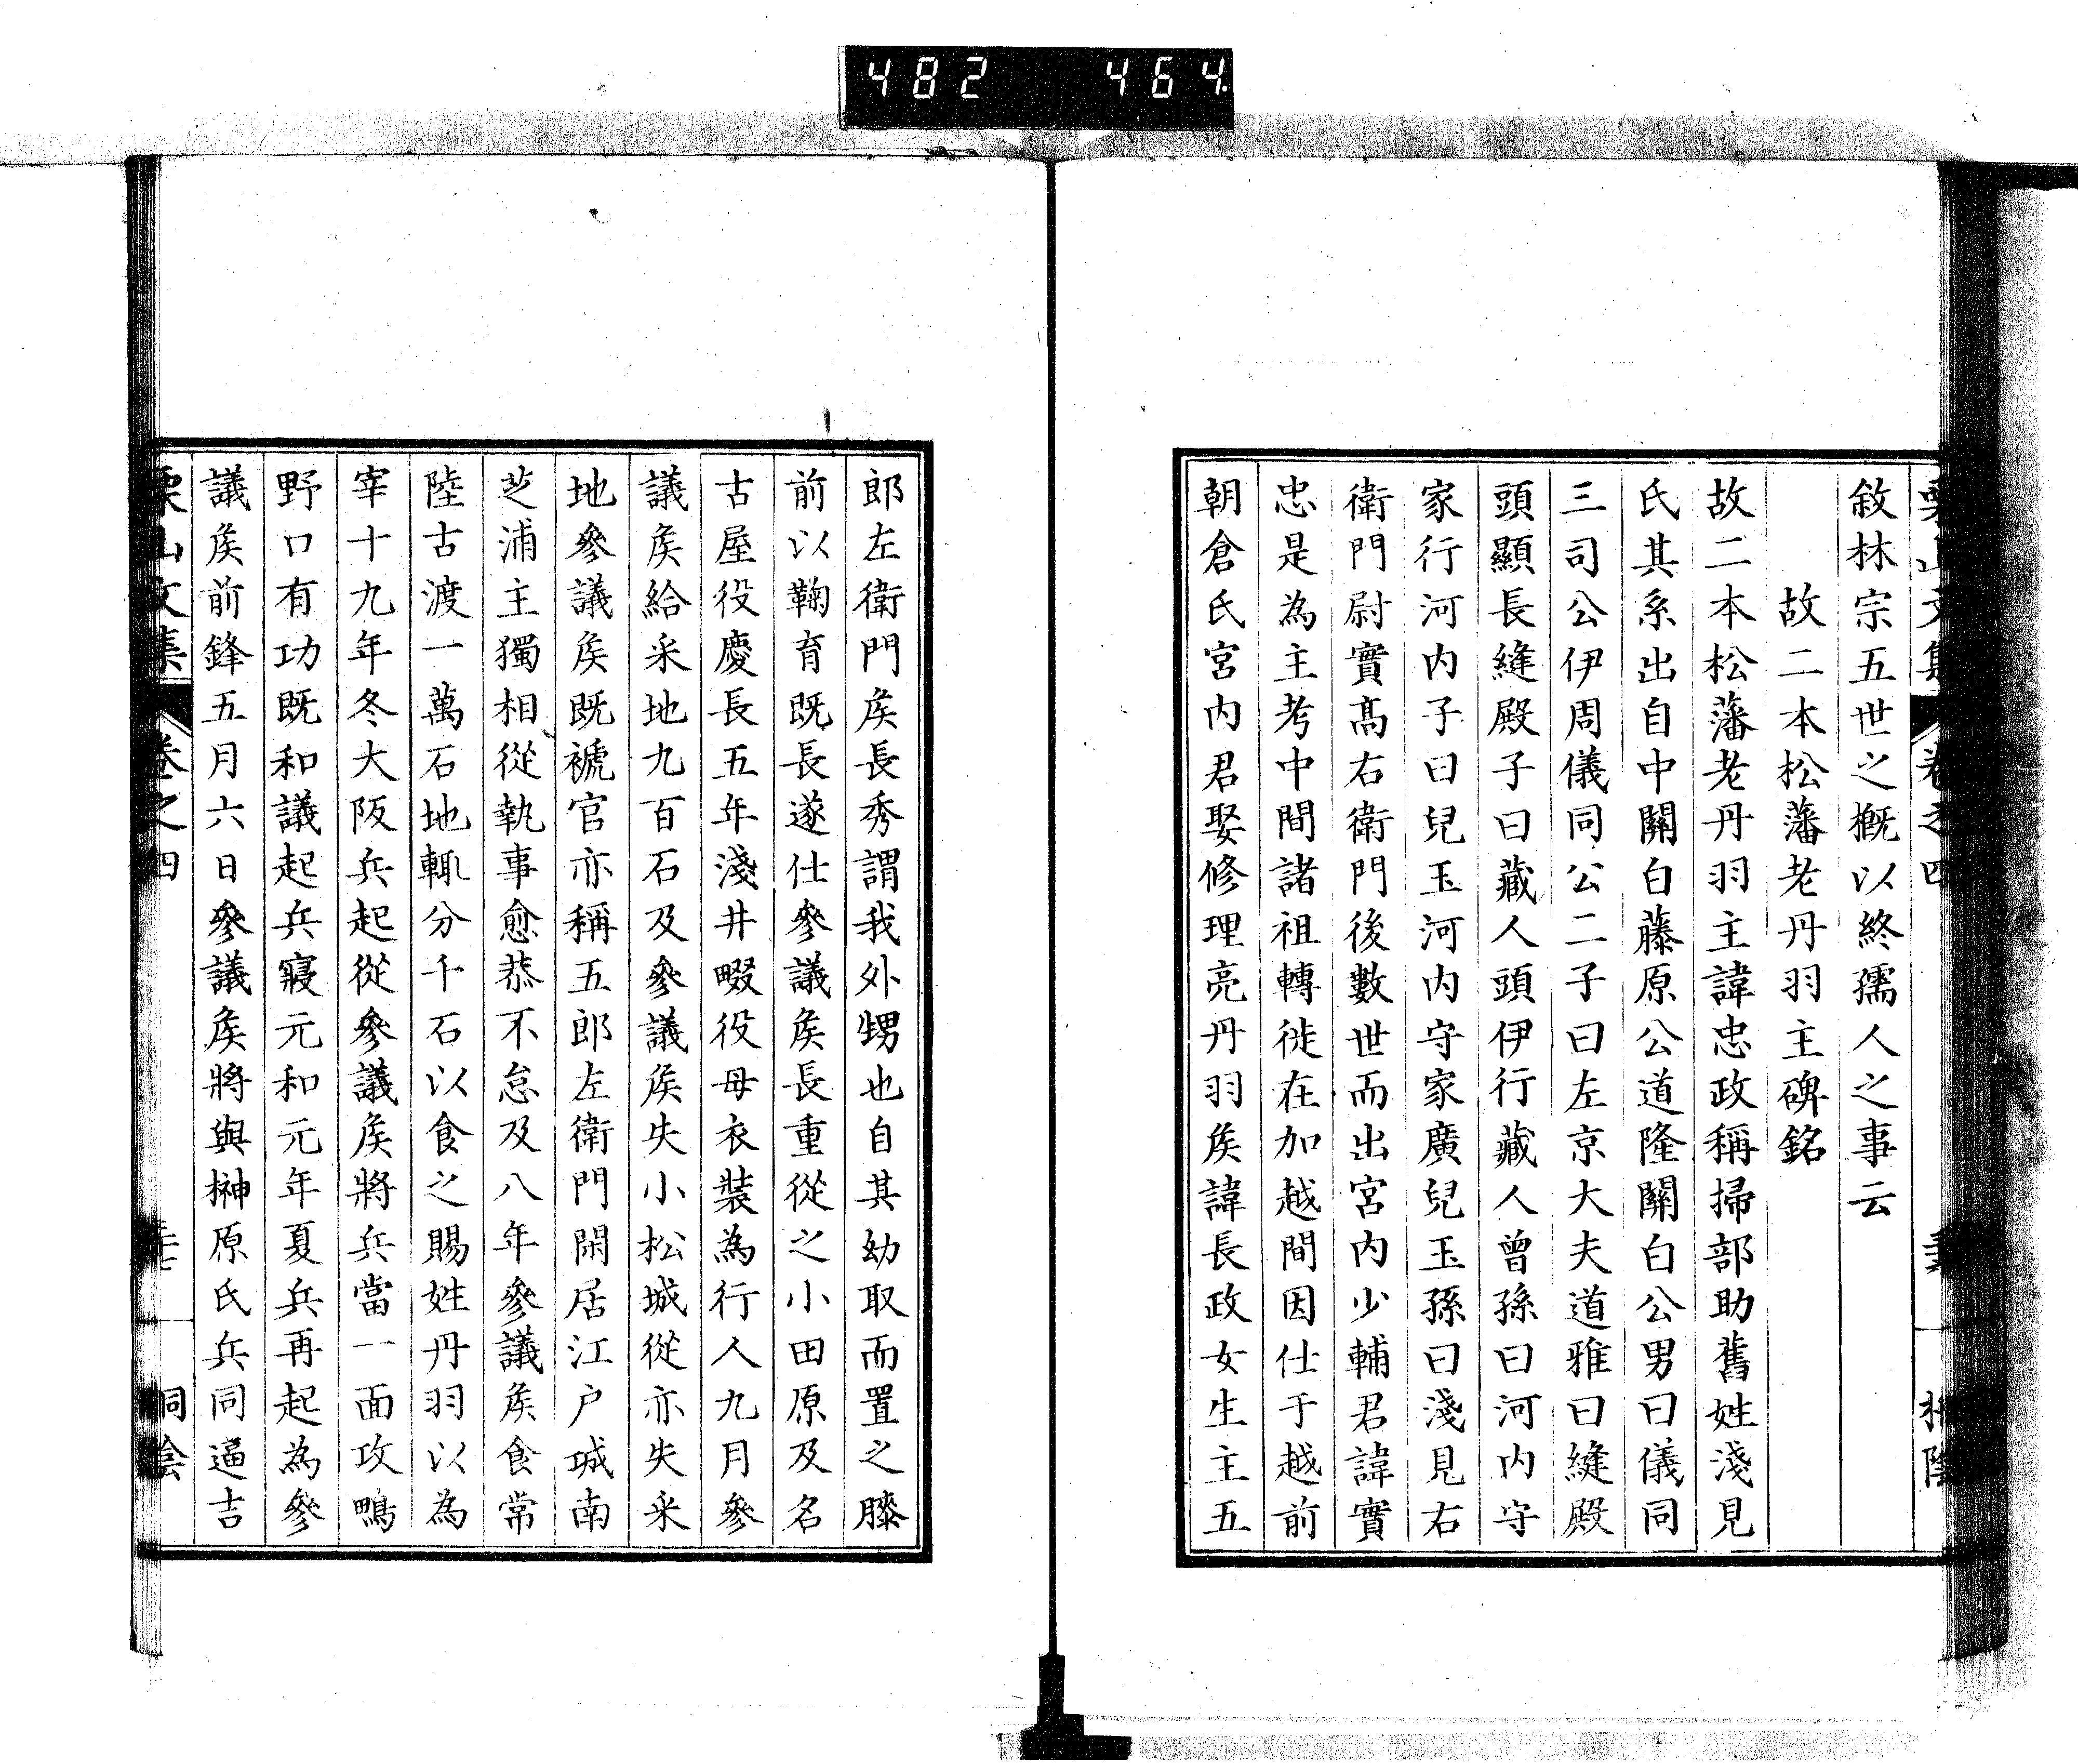 482 464
敘林宗五世之概以終孺人之事云
故二本松藩老丹羽主碑銘
故二本松藩老丹羽主諱忠政稱掃部助舊姓淺見
氏其系出自中關白藤原公道隆關白公男曰儀同
三司公伊周儀同公二子曰左京大夫道雅曰縫殿
頭顯長縫殿子曰藏人頭伊行藏人曾孫曰河内守
家行河内子曰兒玉河内守家廣兒玉孫曰淺見右
衛門尉實髙右衛門後數世而出宮内少輔君諱實
忠是為主考中間諸祖轉徙在加越間因仕于越前
朝倉氏宮内君娶修理亮丹羽矦諱長政女生主五
郎左衛門矦長秀謂我外甥也自其幼取而置之膝
前以鞠育既長遂仕參議矦長重從之小田原及名
古屋役慶長五年淺井畷役母衣裝為行人九月參
議矦給采地九百石及參議矦失小松城從亦失采
地參議矦既褫官亦稱五郎左衛門閑居江户城南
芝浦主獨相從執事愈恭不怠及八年參議矦食常
陸古渡一萬石地輒分千石以食之賜姓丹羽以為
宰十九年冬大阪兵起從參議矦將兵當一面攻鴫
野口有功既和議起兵寢元和元年夏兵再起為參
議矦前鋒五月六日參議矦將與榊原氏兵同逼吉
栗山文集 卷之四